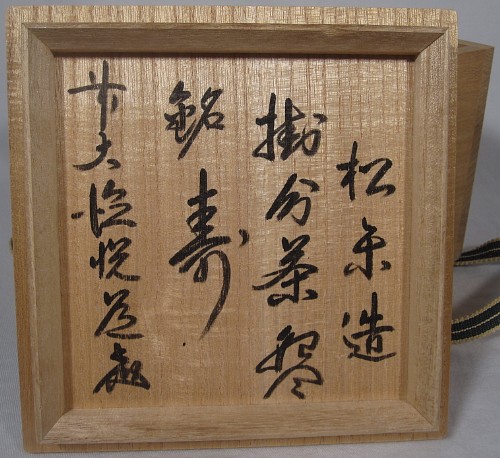 松楽造
掛分茶碗
銘 寿
前大徳悦道